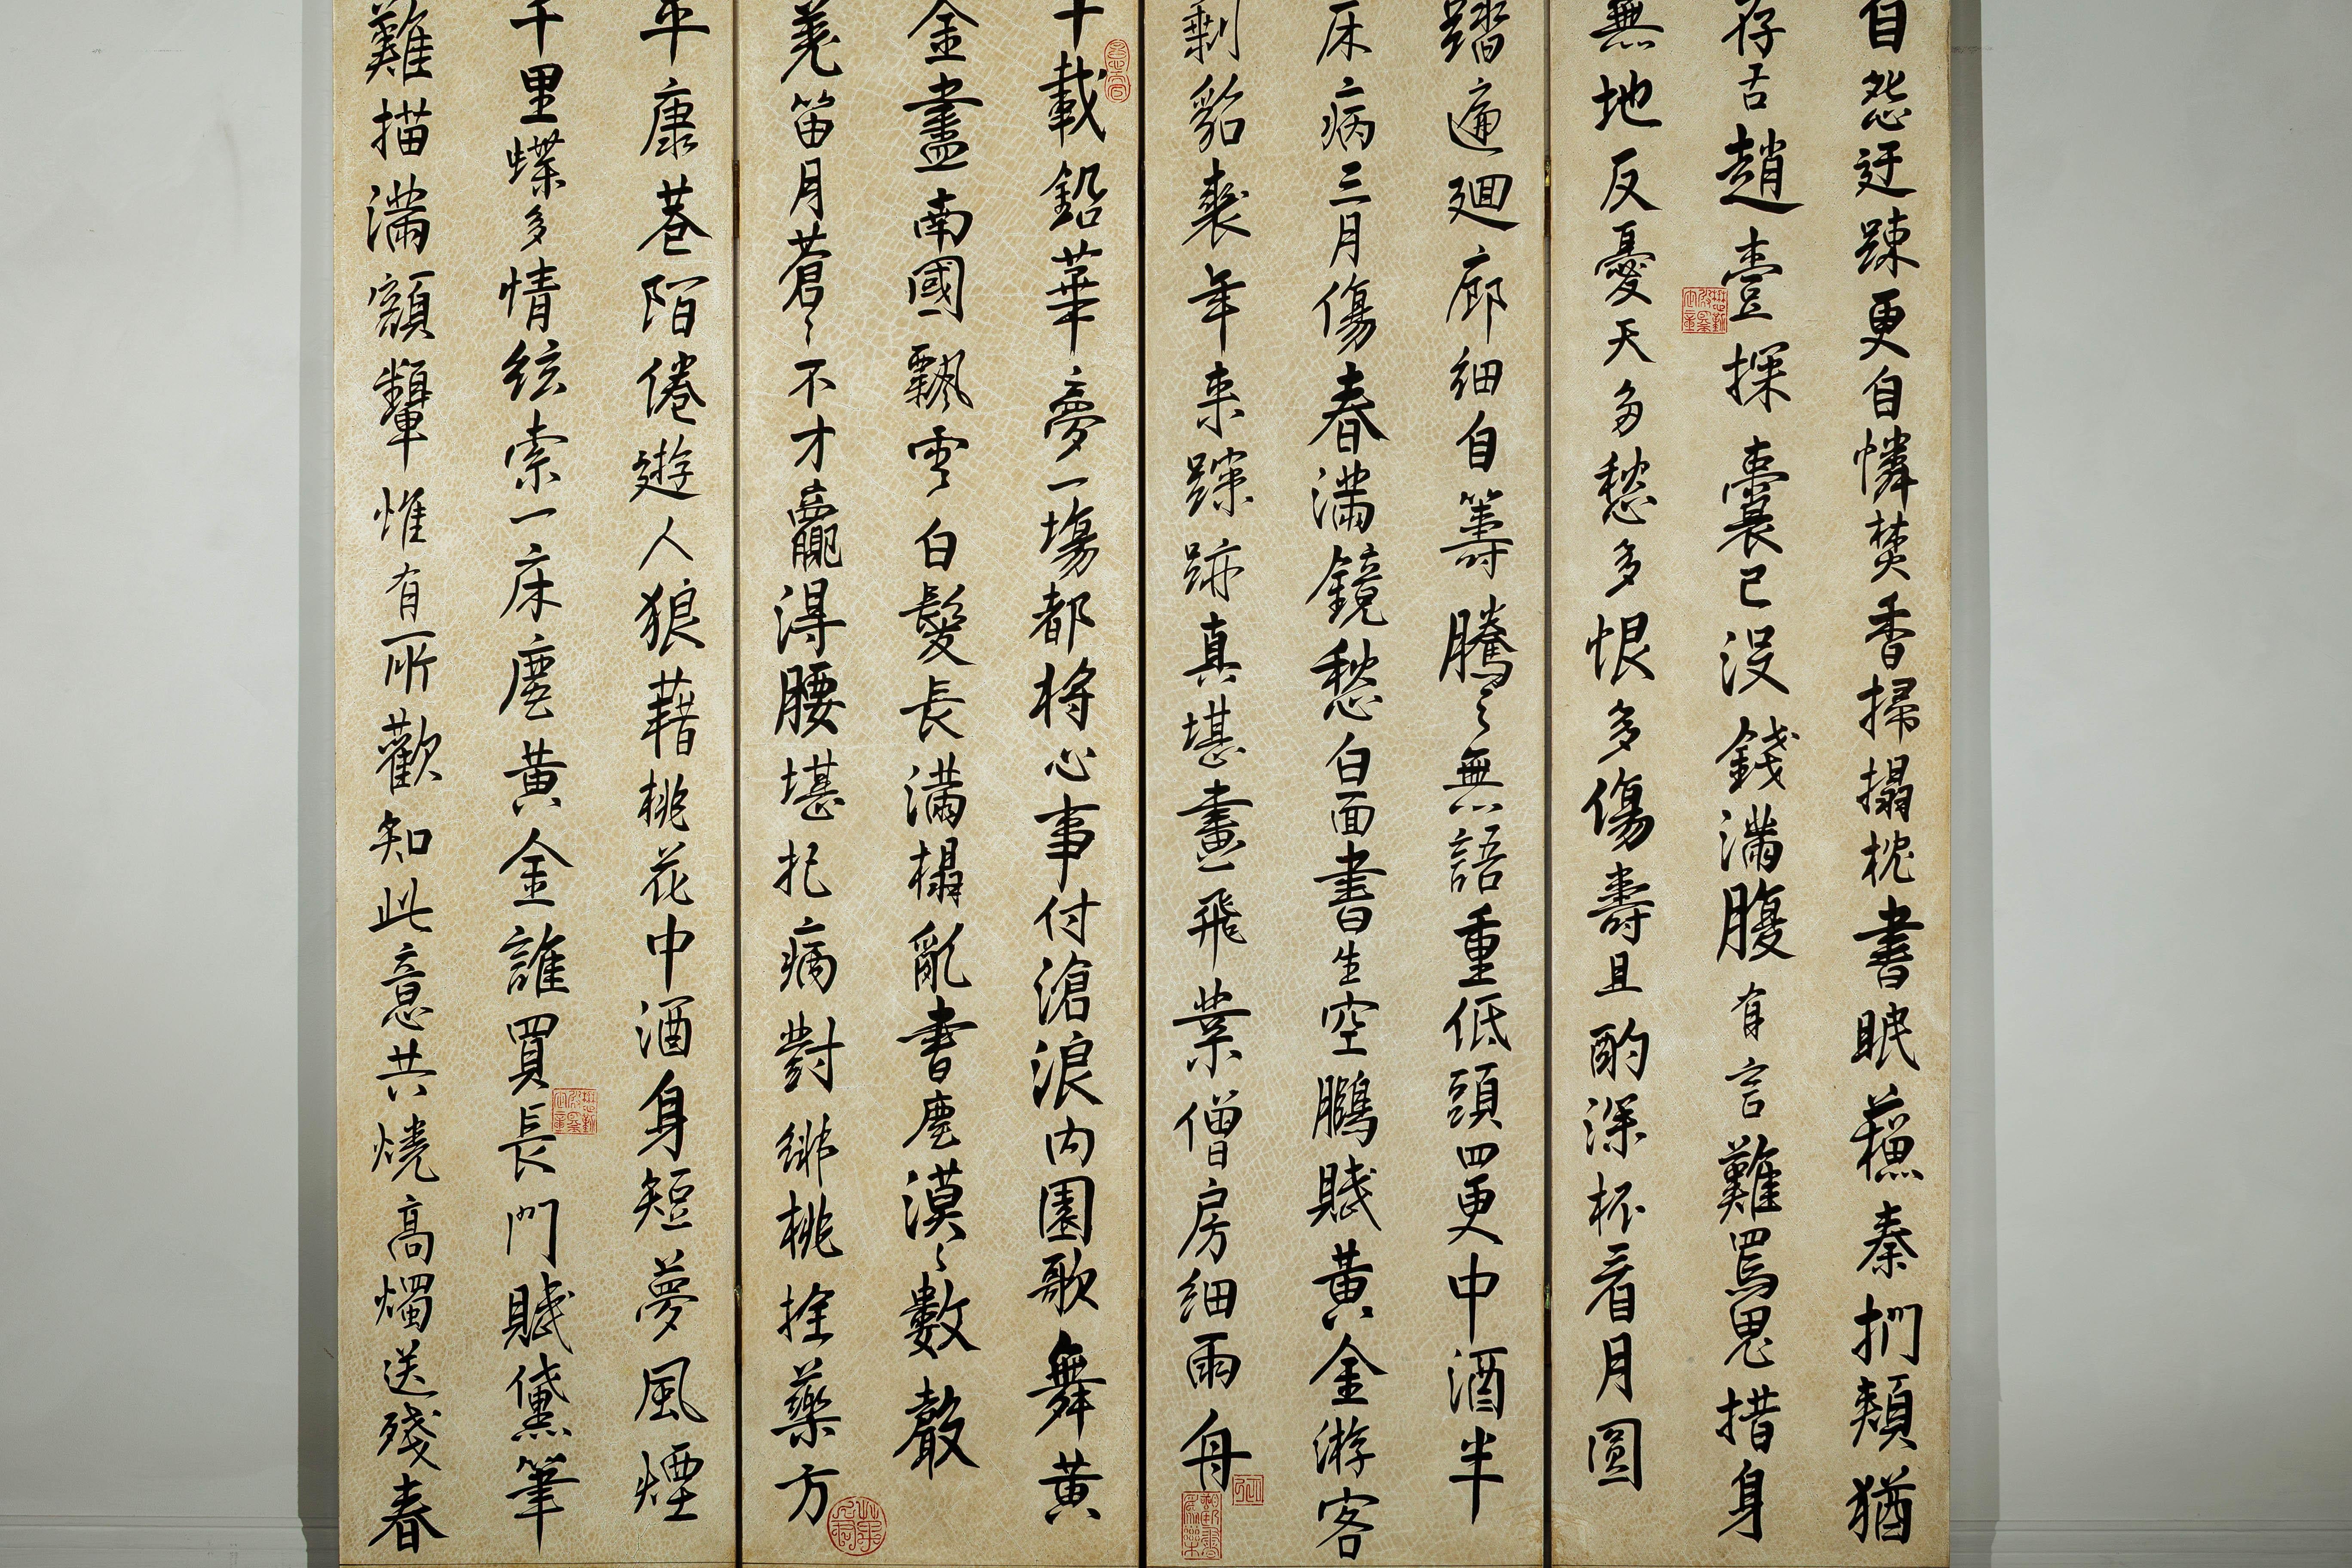 自怨迂疎更自憐焚香掃搨枕書眠蘓秦捫頰猶
存舌趙壹探囊已没錢滿腹有言難罵鬼措身
無地反憂天多愁多恨多傷壽且酌深杯看月圓
踏遍迴廊細自籌騰〻無語重低頭四更中酒半
床病三月傷春滿鏡愁白面書生空鵩賦黃金游客
剩貂裘年来踪跡真堪畫一飛葉僧房細雨舟
十載鉛華夢一場都将心事付滄浪内園歌舞黃
金盡南國飄零白髮長滿榻亂書塵漠〻數聲
羌笛月蒼〻不才贏得腰堪把病對緋桃撿藥方
平康巷陌倦遊人狼藉桃花中酒身短夢風煙
千里蝶多情絃索一床塵黃金誰買長門賦黛筆
難描滿額顰惟有所歡知此意共燒高燭送殘春